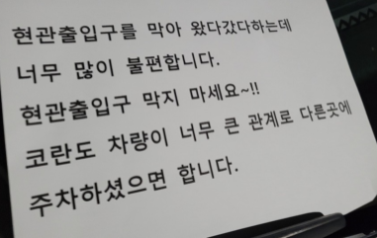 현관출입구를 막아 왔다갔다하는데
너무 많이 불편합니다.
현관출입구 막지 마세요~!!
코란도 차량이 너무 큰 관계로 다른곳에
주차하셨으면 합니다.